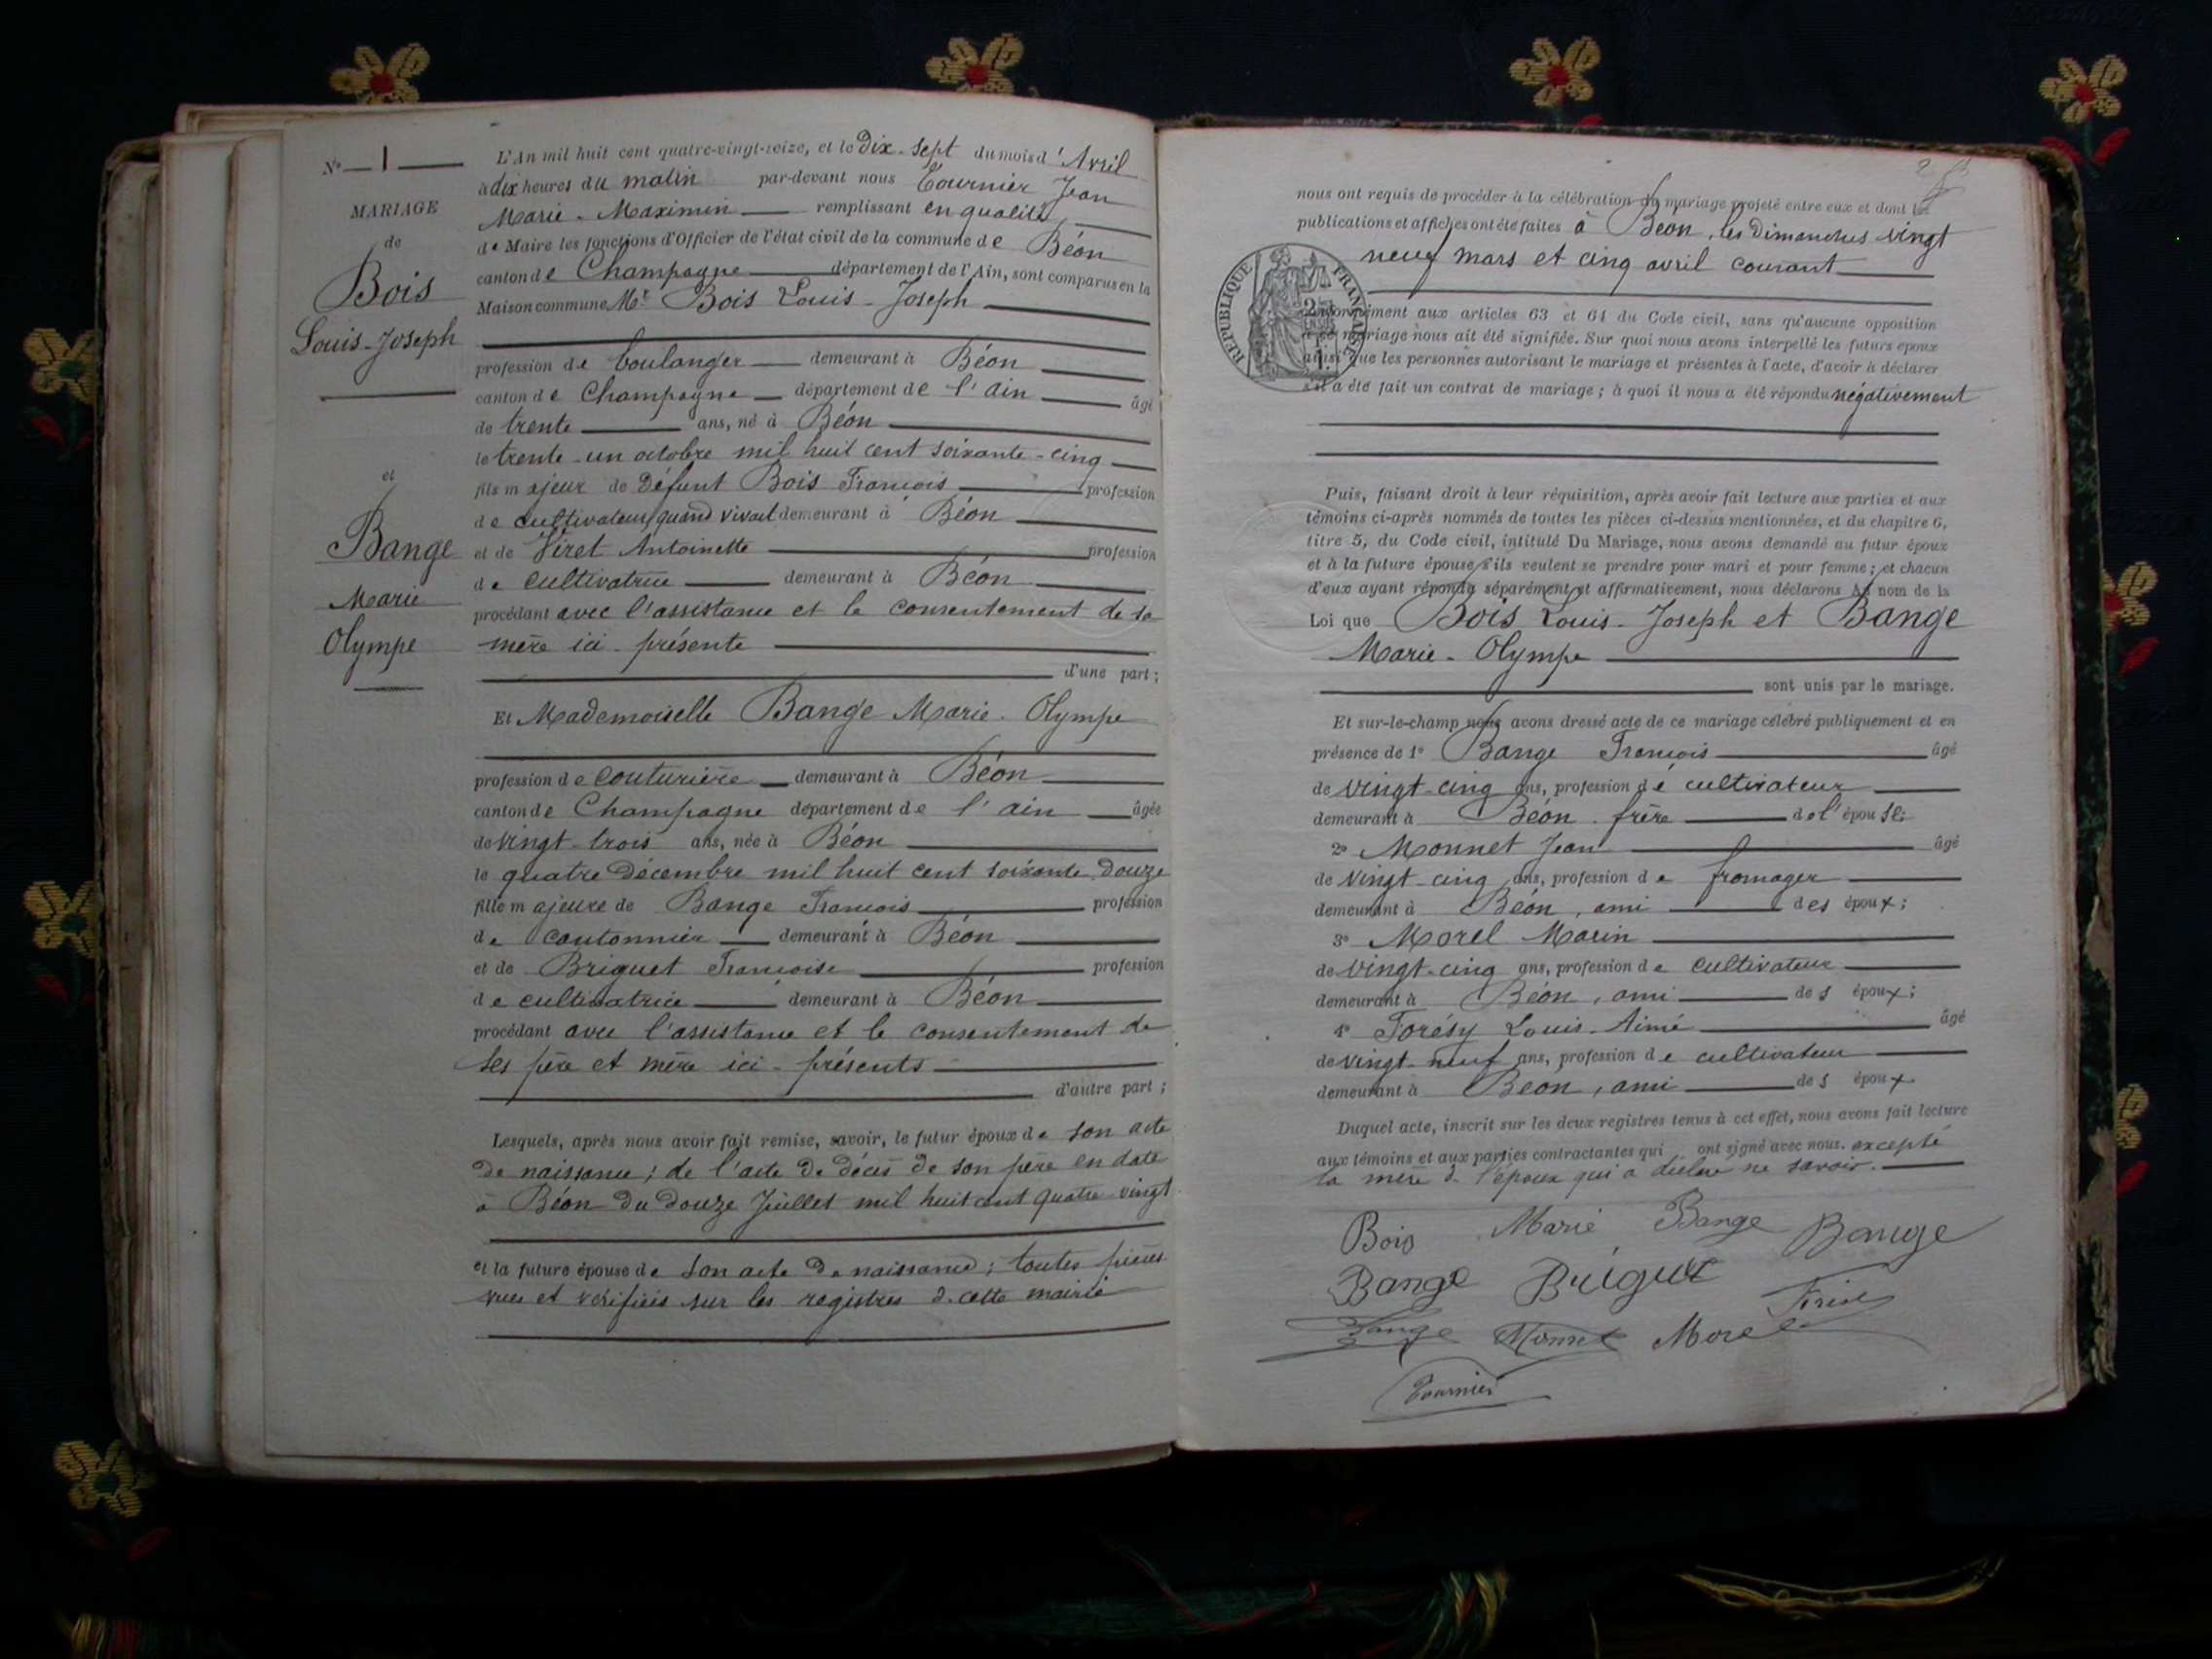 N° 1
MARIAGE
de
Bois
Louis-Joseph
et
Bange
Marie
Olympe
L'An mil huit cent quatre-vingt-seize, et le Dix-Sept du mois d'Avril
à dix heures du matin par-devant nous Tournier Jean
Marie-Maximin remplissant en qualité
de Maire les fonctions d'Officier de l'état civil de la commune de Béon
canton de Champagne département de l'Ain, sont comparus en la
Maison commune, Mr Bois Louis-Joseph
profession de boulanger demeurant à Béon
canton de Champagne département de l'ain âgé
de trente ans, né à Béon
le trente-un octobre mil huit cent soixante-cinq
fils majeur de Défunt Bois François profession
de cultivateur, quand vivait demeurant à Béon
et de Viret Antoinette profession
de cultivatrice demeurant à Béon
procédant avec l'assistance et le consentement de sa
mère ici-présente
d'une part;
Et Mademoiselle Bange Marie-Olympe
profession de couturière demeurant à Béon
canton de Champagne département de l'ain âgée
de vingt-trois ans, née à Béon
le quatre Décembre mil huit cent soixante Douze
fille majeure de Bange François profession
de cantonnier demeurant à Béon
et de Briguet Françoise profession
de cultivatrice demeurant à Béon
procédant avec l'assistance et le consentement de
ses père et mère ici-présents
d'autre part;
Lesquels, après nous avoir fait remise, savoir, le futur époux de son acte
de naissance; de l'acte de décès de son père en date
à Béon du douze Juillet mil huit cent quatre-vingt
et la future épouse de son acte de naissance; toutes pièces
vues et vérifiées sur les registres d. cette mairie
nous ont requis de procéder à la célébration du mariage projeté entre eux et dont les
publications et affiches ont été faites à Béon, les Dimanches vingt
neuf mars et cinq avril courant
RÉPUBLIQUE FRANÇAISE
conformément aux articles 63 et 64 du Code civil, sans qu'aucune opposition
à ce mariage nous ait été signifiée. Sur quoi nous avons interpellé les futurs époux
ainsi que les personnes autorisant le mariage et présentes à l'acte, d'avoir à déclarer
s'il a été fait un contrat de mariage; à quoi il nous a été répondu négativement
Puis, faisant droit à leur réquisition, après avoir fait lecture aux parties et aux
témoins ci-après nommés de toutes les pièces ci-dessus mentionnées, et du chapitre 6,
titre 5, du Code civil, intitulé Du Mariage, nous avons demandé au futur époux
et à la future épouse s'ils veulent se prendre pour mari et pour femme; et chacun
d'eux ayant répondu séparément et affirmativement, nous déclarons Au nom de la
Loi que Bois Louis-Joseph et Bange
Marie-Olympe
sont unis par le mariage.
Et sur-le-champ nous avons dressé acte de ce mariage célébré publiquement et en
présence de 1° Bange François âgé
de vingt-cinq ans, profession de cultivateur
demeurant à Béon. frère de l'épouse;
2° Monnet Jean âgé
de vingt-cinq ans, profession de fromager
demeurant à Béon, ami des époux;
3° Morel Marin
de vingt-cinq ans, profession de cultivateur
demeurant à Béon, ami des époux;
4° Forésy Louis-Aimé âgé
de vingt-neuf ans, profession de cultivateur
demeurant à Béon, ami des époux.
Duquel acte, inscrit sur les deux registres tenus à cet effet, nous avons fait lecture
aux témoins et aux parties contractantes qui ont signé avec nous. excepté
la mère d. l'époux qui a déclaré ne savoir.
Bois Marie Bange Bange
Bange Briguet
Bange Monnet Morel
Tournier